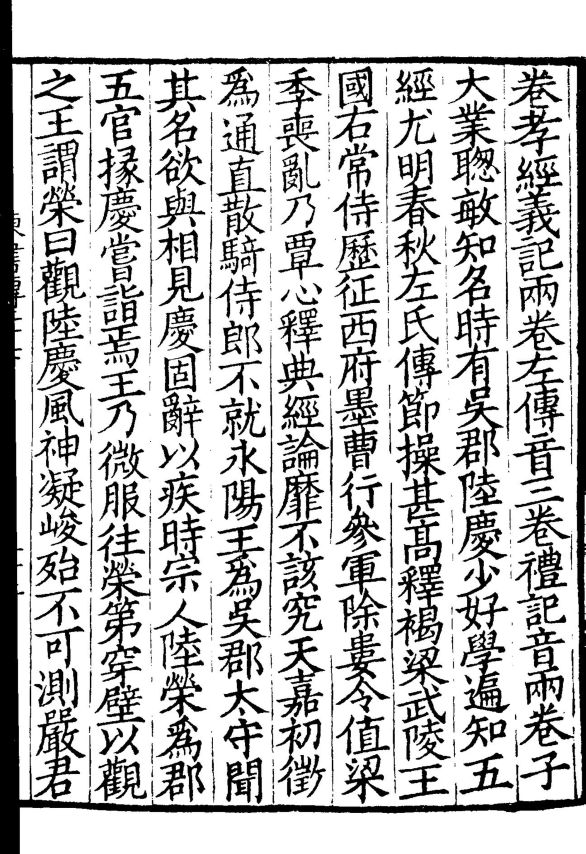 卷孝經義記兩卷左傳音三卷禮記音兩卷子
大業聦敏知名時有吳郡陸慶少好學遍知五
經尤明春秋左氏傳節操甚高釋褐梁武陵王
國右常侍歷征西府墨曹行參軍除婁令值梁
季喪亂乃覃心釋典經論靡不該究天嘉初徵
爲通直散騎侍郎不就永陽王爲吳郡太守聞
其名欲與相見慶固辭以疾時宗人陸榮爲郡
五官掾慶嘗詣焉王乃微服往榮第穿壁以觀
之王謂榮曰觀陸慶風神凝峻殆不可測嚴君